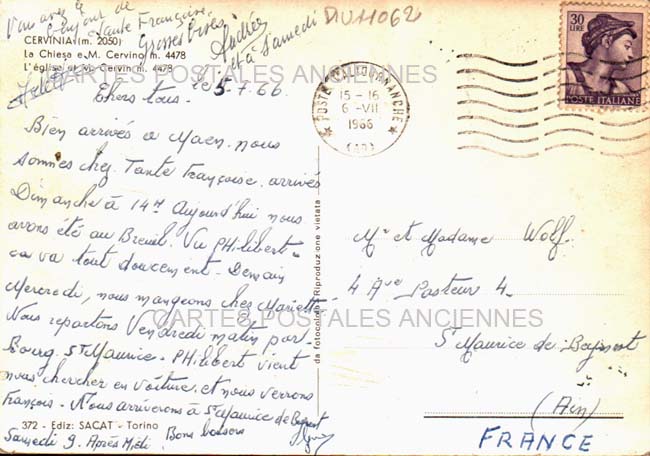 Vous avez le
bonjour de
Tante Françoise
Grosses Bises
Andrée
et à samedi
DIV11062
CERVINIA (m. 2050)
La Chiesa e M. Cervino m. 4478
L'église et M. Cervin m. 4478
CARTES POSTALES ANCIENNES
le 5-7.66
Chers tous.
Bien arrivés à Maen. nous
sommes chez Tante Françoise. arrivés
Dimanche à 14H Aujourd'hui nous
avons été au Breuil. Vu PHilibert
ça va tout doucement. Demain
Mercredi, nous mangeons chez Mariette
Nous repartons Vendredi matin par
Bourg. St Maurice. PHilibert vient
nous chercher en voiture et nous verrons
François. Nous arriverons à St Maurice de Beynost
Samedi 9. Après Midi. Bons baisers
372 - Ediz: SACAT - Torino
da fotocolor Riproduzione vietata
15-16
6-VII
1966
30
LIRE
POSTE ITALIANE
Mr et Madame Wolf
4 Ave Pasteur 4
CARTES POSTALES ANCIENNES
St Maurice de Beynost
(Ain)
FRANCE